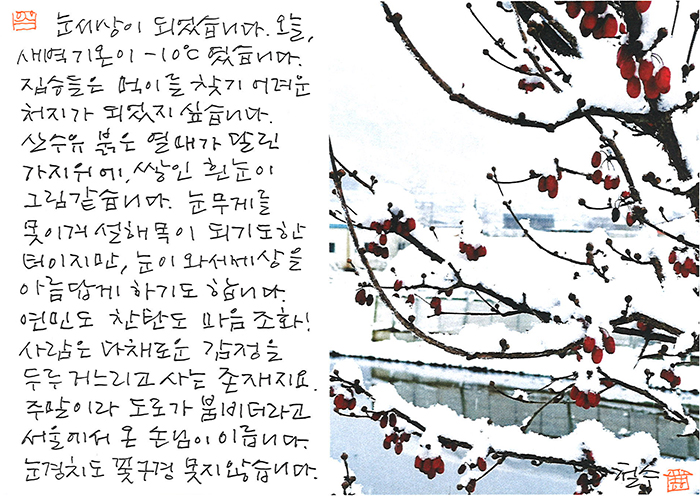 눈세상이 되었습니다. 오늘,
새벽기온이 -10℃ 였습니다.
짐승들은 먹이를 찾기 어려운
처지가 되었지 싶습니다.
산수유 붉은 열매가 달린
가지위에, 쌓인 흰눈이
그림같습니다. 눈무게를
못이겨 설해목이 되기도한
터이지만, 눈이 와서 세상을
아름답게 하기도 합니다.
연민도 찬탄도 마음 조화!
사람은 다채로운 감정을
두루 거느리고 사는 존재지요.
주말이라 도로가 붐비더라고
서울에서 온 손님이 이릅니다.
눈경치도 꽃구경 못지않습니다.
철수